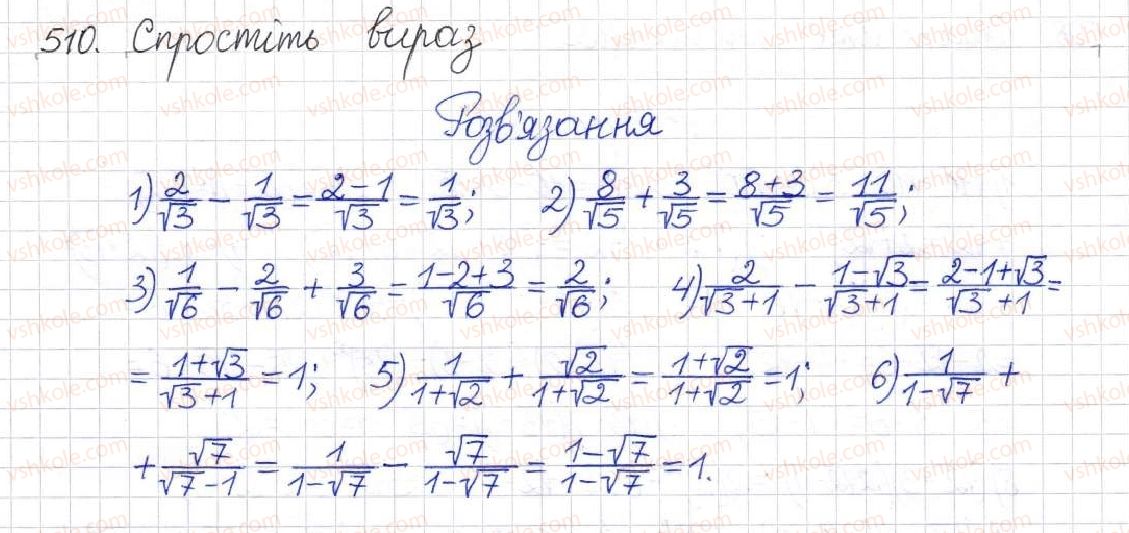 510. Спростіть вираз
Розв'язання
1) 2/√3 − 1/√3 = (2−1)/√3 = 1/√3; 2) 8/√5 + 3/√5 = (8+3)/√5 = 11/√5;
3) 1/√6 − 2/√6 + 3/√6 = (1−2+3)/√6 = 2/√6; 4) 2/(√3+1) − (1−√3)/(√3+1) = (2−1+√3)/(√3+1) =
= (1+√3)/(√3+1) = 1; 5) 1/(1+√2) + √2/(1+√2) = (1+√2)/(1+√2) = 1; 6) 1/(1−√7) +
+ √7/(√7−1) = 1/(1−√7) − √7/(1−√7) = (1−√7)/(1−√7) = 1.
vshkole.com